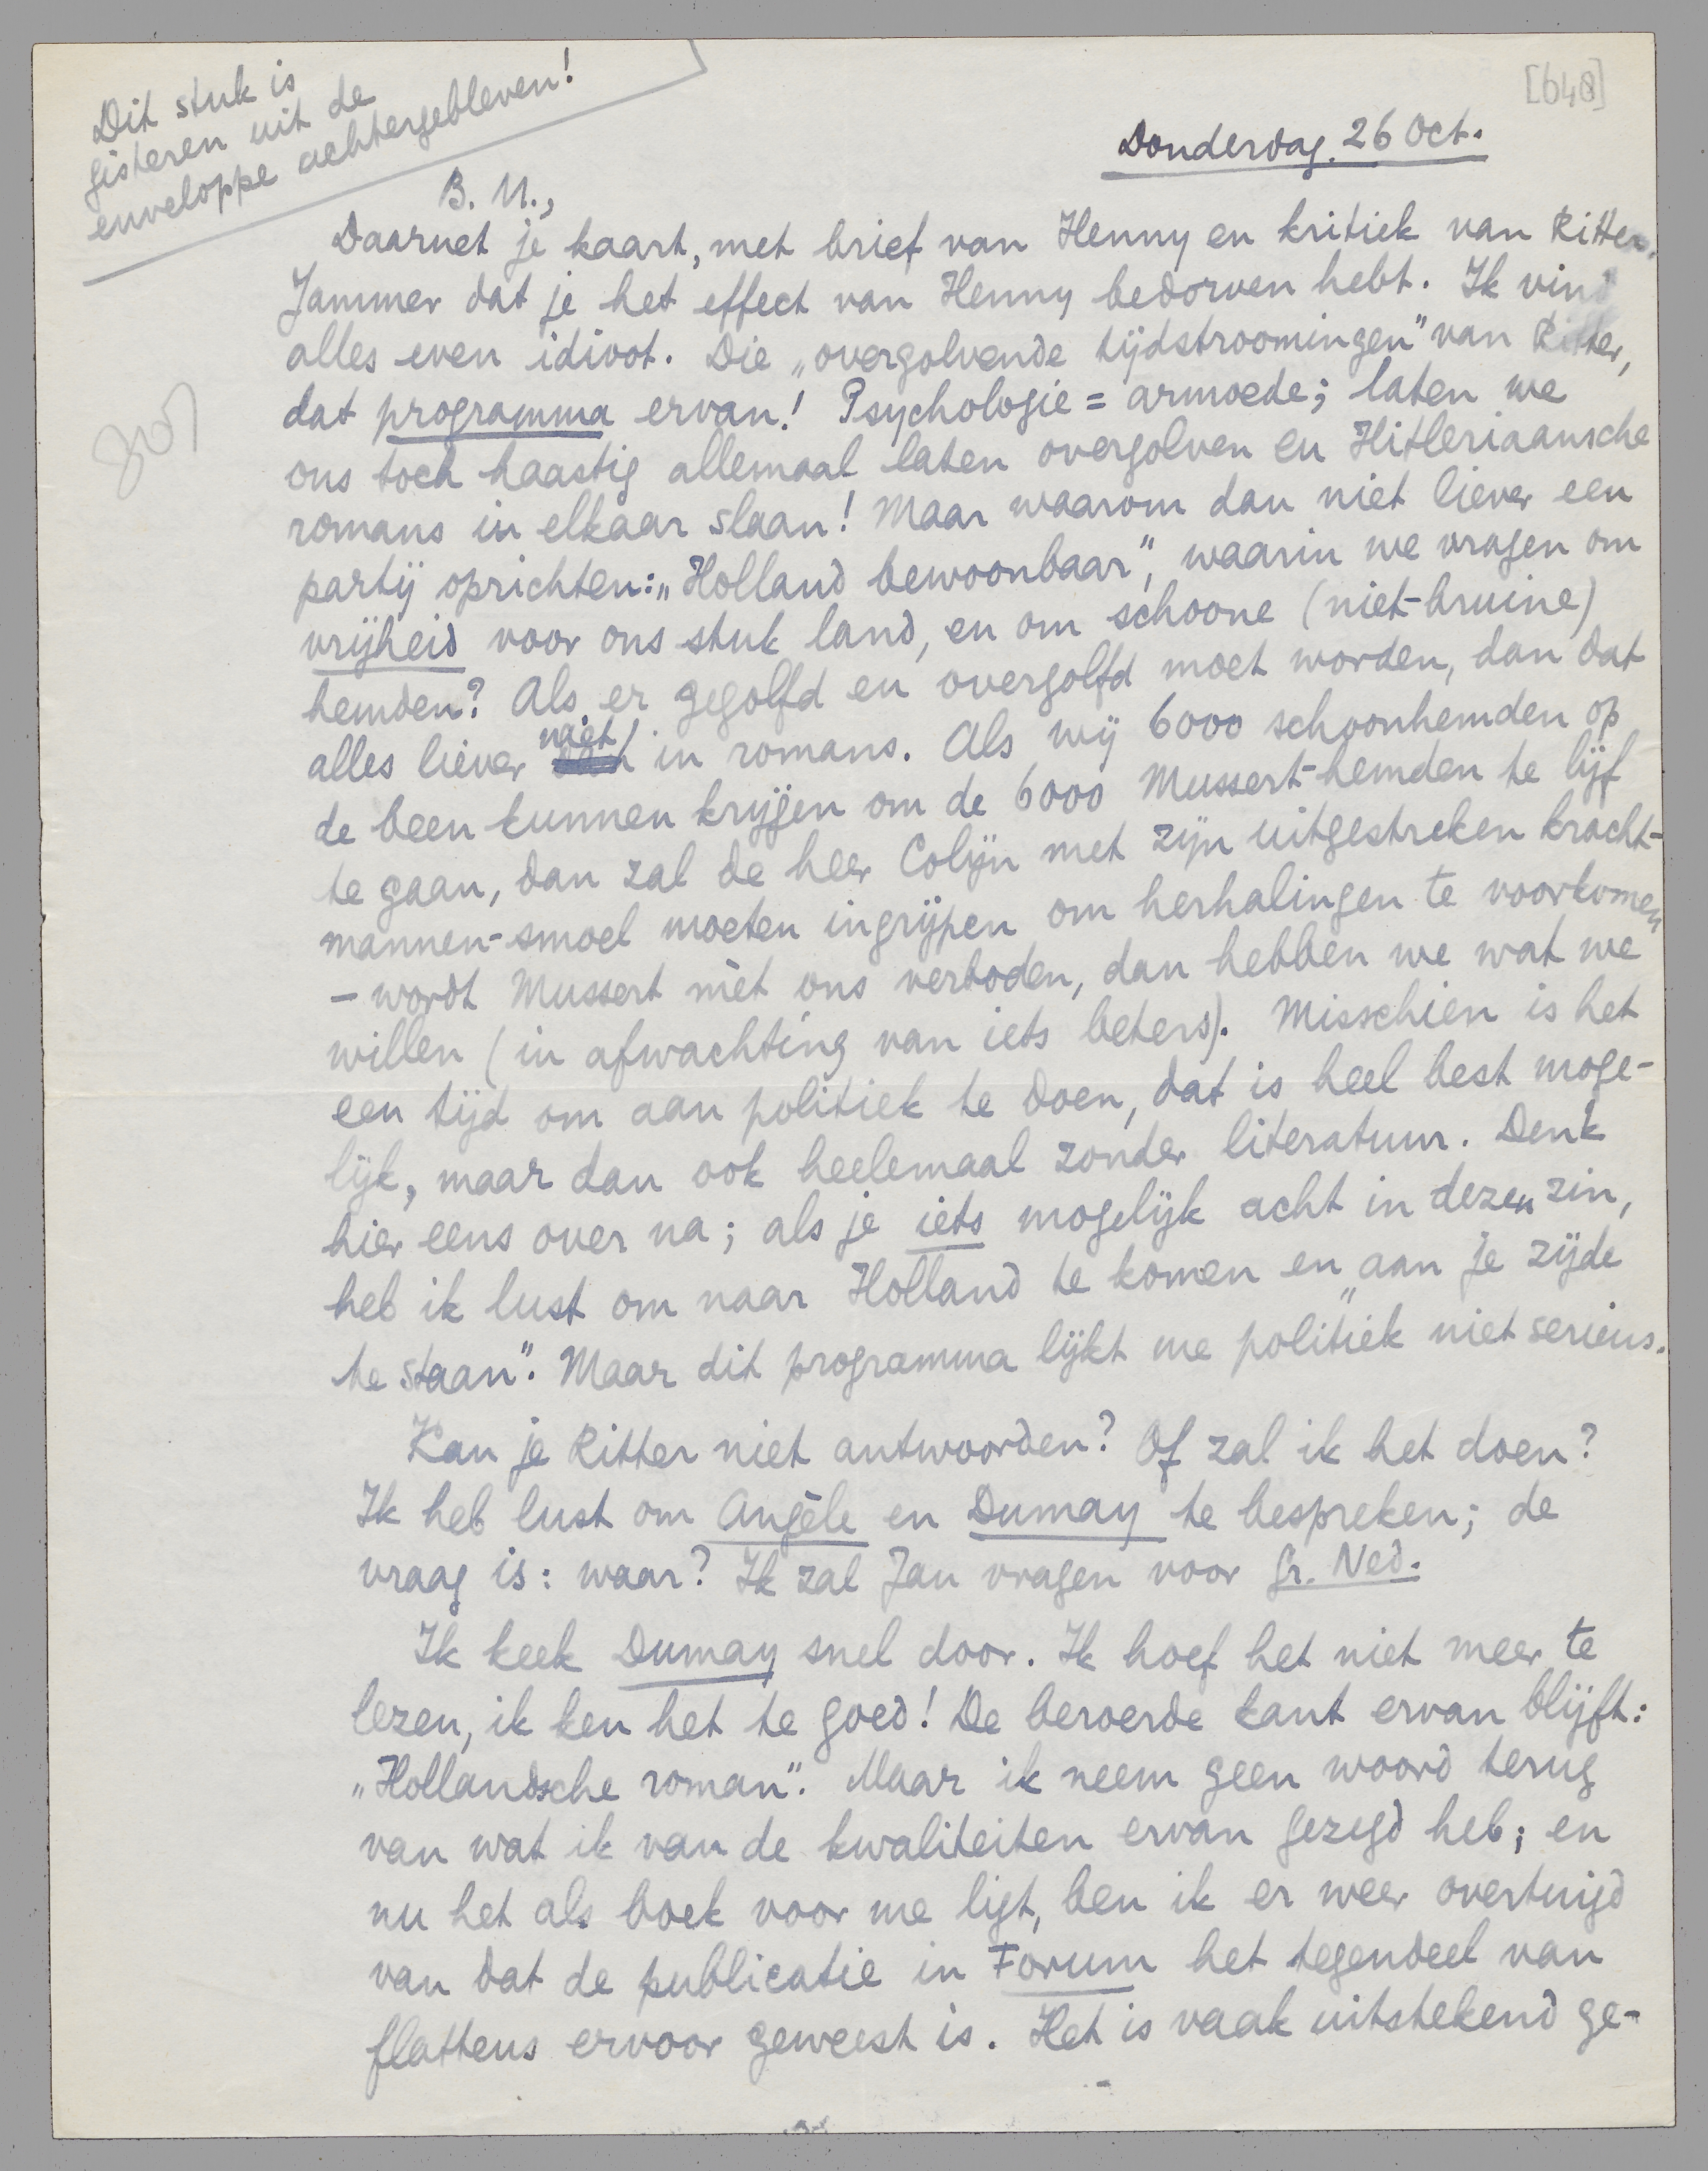 Dit stuk is
gisteren uit de
enveloppe achtergebleven!
[648]
Donderdag. 26 Oct.
B. M.,
Daarnet je kaart, met brief van Henny en kritiek van Ritter.
Jammer dat je het effect van Henny bedorven hebt. Ik vind
alles even idioot. Die „overgolvende tijdstroomingen” van Ritter,
dat programma ervan! Psychologie = armoede; laten we
ons toch haastig allemaal laten overgolven en Hitleriaansche
romans in elkaar slaan! Maar waarom dan niet liever een
partij oprichten: „Holland bewoonbaar”, waarin we vragen om
vrijheid voor ons stuk land, en om schoone (niet-bruine)
hemden? Als er gegolfd en overgolfd moet worden, dan dat
alles liever niet in romans. Als wij 6000 schoonhemden op
de been kunnen krijgen om de 6000 Mussert-hemden te lijf
te gaan, dan zal de heer Colijn met zijn uitgestreken kracht-
mannen-smoel moeten ingrijpen om herhalingen te voorkomen
– wordt Mussert mèt ons verboden, dan hebben we wat we
willen (in afwachting van iets beters). Misschien is het
een tijd om aan politiek te doen, dat is heel best moge-
lijk, maar dan ook heelemaal zonder literatuur. Denk
hier eens over na; als je iets mogelijk acht in dezen zin,
heb ik lust om naar Holland te komen en „aan je zijde
te staan”. Maar dit programma lijkt me politiek niet serieus.
Kan je Ritter niet antwoorden? Of zal ik het doen?
Ik heb lust om Angèle en Dumay te bespreken; de
vraag is: waar? Ik zal Jan vragen voor Gr. Ned.
Ik keek Dumay snel door. Ik hoef het niet meer te
lezen, ik ken het te goed! De beroerde kant ervan blijft:
„Hollandsche roman”. Maar ik neem geen woord terug
van wat ik van de kwaliteiten ervan gezegd heb; en
nu het als boek voor me ligt, ben ik er weer overtuigd
van dat de publicatie in Forum het tegendeel van
flatteus ervoor geweest is. Het is vaak uitstekend ge-